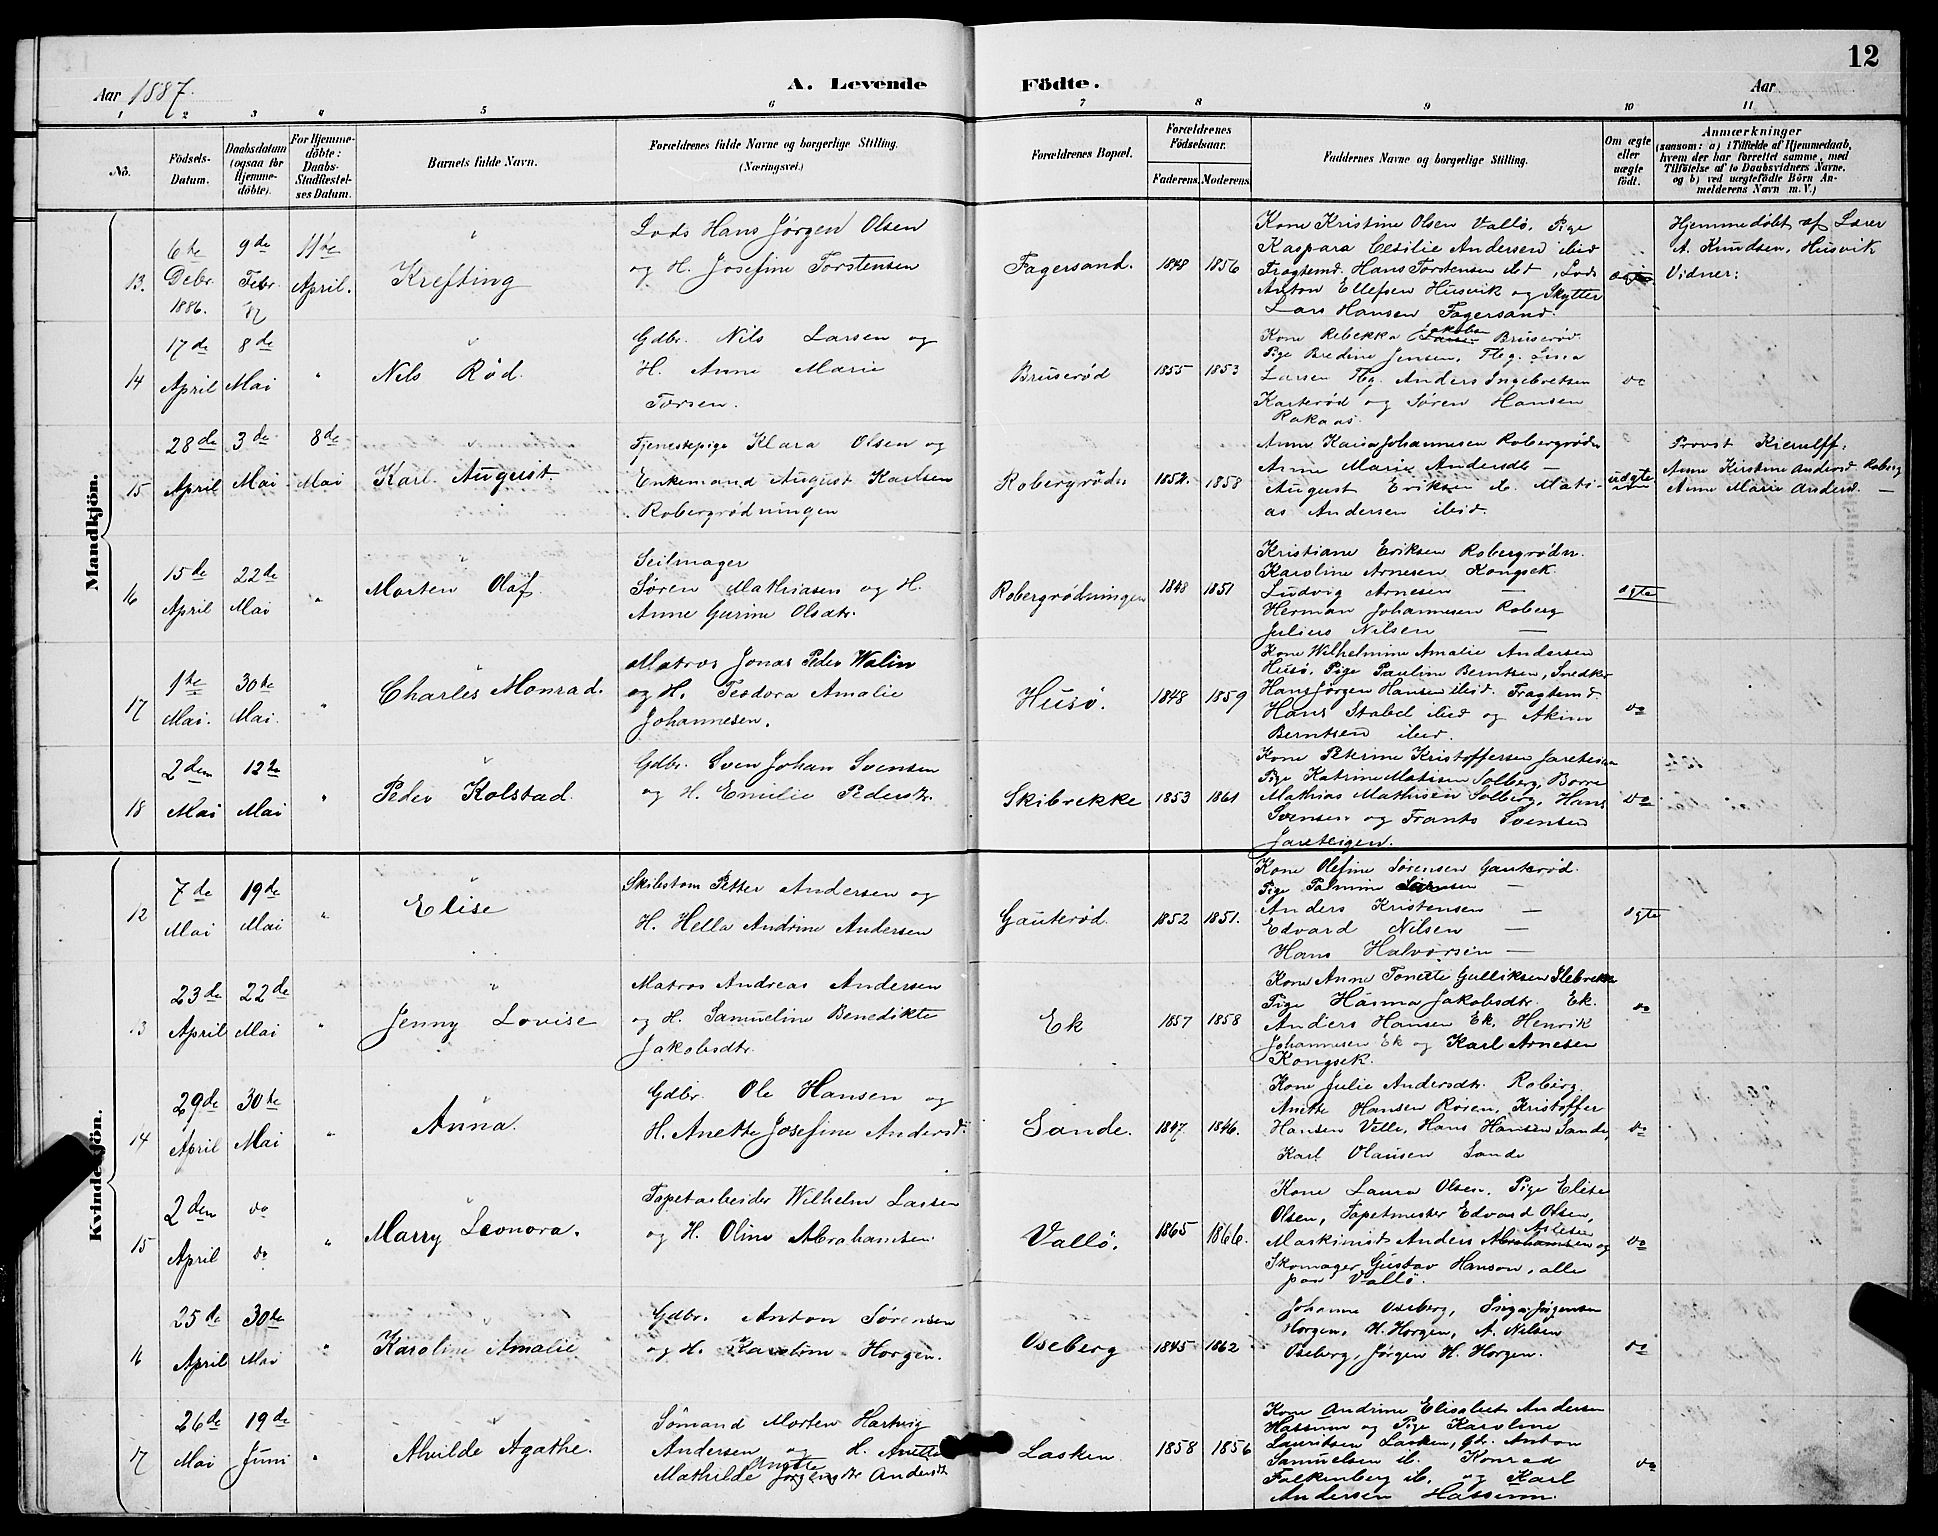 12
Aar 1887.
A. Levende Födte.
Aar
1 2 3 4 5 6 7 8 9 10 11
No.
Födsels-Datum.
Daabsdatum (ogsaa for Hjemmedöbte).
For Hjemmedöbte: Daabs-Stadfæstelses Datum.
Barnets fulde Navn.
Forældrenes fulde Navne og borgerlige Stilling. (Næringsvei.)
Forældrenes Bopæl.
Forældrenes Födselsaar.
Faderens. Moderens.
Faddernes Navne og borgerlige Stilling.
Om ægte eller uægte födt.
Anmærkninger
(saasom: a) i Tilfælde af Hjemmedaab, hvem der har forrettet samme, med Tilföielse af to Daabsvidners Navne, og b) ved uægtefödte Börn Anmelderens Navn m. V.)
Mandkjön.
13. 6te Debr. 1886. 9de Febr. 11te April.
Krefting
Lods Hans Jörgen Olsen
og H. Josefine Torstensen
Fagersand. 1848 1856
Kone Kristine Olsen Vallö, Pige
Kaspara Cesilie Andersen ibid
Fragtemd. Hans Torstensen ibd, Lods
Anton Ellefsen Husvik og Skytter
Lars Hansen Fagersand.
ægte
Hjemmedöbt af Lærer
A. Knudsen, Husvik
Vidner:
14 17de April 8de Mai "
Nils Röd.
Gdbr. Nils Larsen og
H. Anne Marie
Torsen.
Bruseröd 1855 1853
Kone Rebekka Jakobsen Bruseröd
Pige Bredine Jensen, Tbg. Lina
Larsen Tbg. Anders Ingebretsen
Karteröd og Sören Hansen
Rakaas.
do
15 28de April 3de Mai 8de Mai
Karl August.
Tjenestepige Klara Olsen og
Enkemand August Karlsen
Robergrödningen
Robergrödn 1852. 1858
Anne Kaisa Johannesen Robergrödn
Anne Marie Andersdt —
August Eriksen ib. Mati-
as Andersen ibid.
uægte
Provst Kierulff.
Anne Kirstine Andersd. Roberg
Anne Marie Andersd. —
16 15de April 22de Mai "
Morten Olaf
Seilmager
Sören Mathiasen og H.
Anne Gurine Olsdtr.
Robergrödningen 1848 1851
Kristiane Eriksen Robergrödn.
Karoline Arnesen Kongsek.
Ludvig Arnesen —
Herman Johannesen Roberg
Julius Nilsen —
ægte
17 1te Mai. 30te Mai. "
Charles Monrad.
Matros Jonas Peder Walin
og H. Teodora Amalie
Johannesen.
Husö. 1848 1859
Kone Wilhelmine Amalie Andersen
Husö, Pige Pauline Berntsen, Snedker
Hans Jörgen Hansen ibid. Fragtemd.
Hans Stabel ibid og Akim
Berntsen ibid.
do
18 2den Mai 12te Mai "
Peder Kolstad
Gdbr. Sven Johan Svensen
og H. Emilie Pedersdtr.
Skibrekke 1853 1861
Kone Peterine Kristoffersen Jareteien
Pige Katrine Matisen Solberg, Borre
Mathias Mathisen Solberg, Hans
Svensen og Frants Svensen
Jareteigen.
do
Kvindekjön.
12 7de Mai 19de Mai "
Elise
Skibstöm Petter Andersen og
H. Hella Andrine Andersen
Gauteröd. 1852 1851.
Kone Olefine Sörensen Gauteröd.
Pige Palmine Larsen —
Anders Kristensen —
Edvard Nilsen —
Hans Halvorsen —
ægte
13 23de April 22de Mai "
Jenny Lovise
Matros Andreas Andersen
og H. Samueline Benedikte
Jakobsdtr.
Ek 1857 1858
Kone Anne Tonette Gulliksen Slebrekke
Pige Hanna Jakobsdtr. Ek.
Anders Hansen Ek, Henrik
Johannesen Ek og Karl Arnesen
Kongsek.
do
14 29de April 30te Mai "
Anna.
Gdbr. Ole Hansen og
H. Anette Josefine Andersd.
Sande. 1847. 1846.
Kone Julie Andersdtr. Roberg.
Anette Hansen Rosen, Kristoffer
Hansen Velle, Hans Hansen Sande,
Karl Olausen Sande
do
15 2den April do do "
Marry Leonora.
Tapetarbeider Wilhelm Larsen
og H. Oline Abrahamsen.
Vallö. 1865 1866.
Kone Laura Olsen. Pige Elise
Olsen, Tapetmester Edvard Olsen,
Maskinist Anders Abrahamsen og
Skomager Gustav Hanson, alle
paa Vallö.
do
16 25de April 30te Mai "
Karoline Amalie
Gdbr. Anton Sörensen
og H. Karoline Horgen.
Oseberg 1845 1862
Johanne Oseberg, Inga Jörgensen
Horgen, H. Horgen, A. Nilsen
Oseberg, Jörgen H. Horgen.
do
17 26de Mai 19de Juni "
Alvilde Agathe.
Sömand Morten Hartvig
Andersen og H. Anette
Mathilde Jörgens Andersdtr
Lasken 1858 1856
Kone Andrine Elisabet Andersen
Hassum og Pige Karoline
Lauritsen Lasken, Gb. Anton
Samuelsen ib. Konrad
Falkenberg ib. og Karl
Andersen Hassum.
do